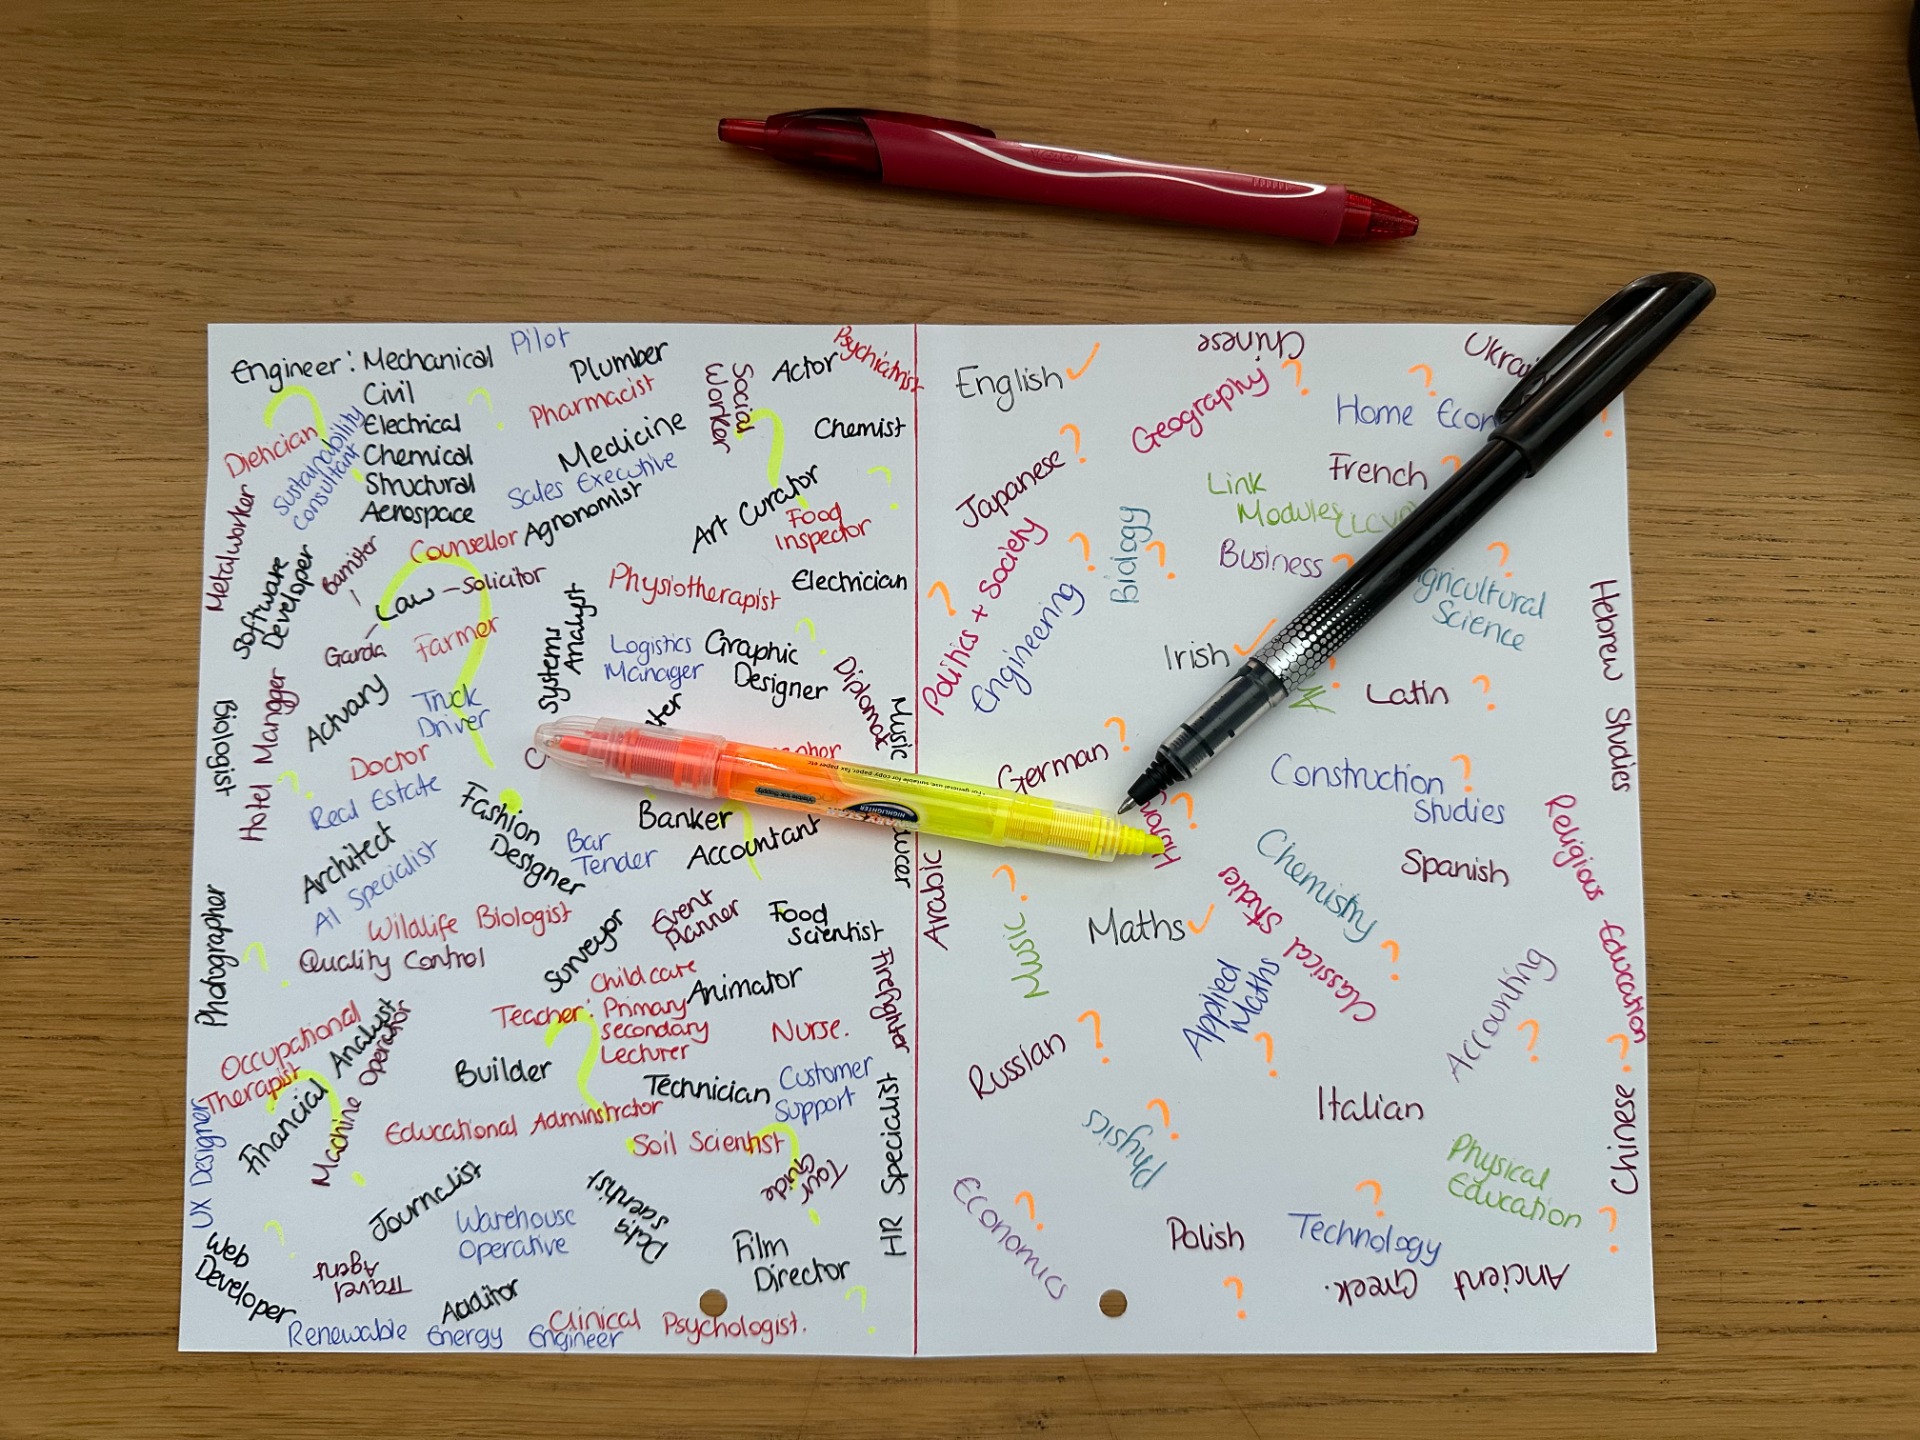 Engineer: Mechanical
Civil
Electrical
Chemical
Structural
Aerospace
Pilot
Plumber
Pharmacist
Social
Worker
Actor
Psychiatrist
Diehcian
Sustainability
Consultant
Medicine
Chemist
Sales Executive
Agronomist
Art Curator
Food
Inspector
Metalworker
Software
Developer
Barrister
Counsellor
Law - Solicitor
Garda
Farmer
Systems
Analyst
Physiotherapist
Electrician
Logistics
Manager
Graphic
Designer
Diplomat
Music
Biologist
Hotel Manger
Actuary
Truck
Driver
Doctor
Real Estate
Fashion
Designer
Banker
Accountant
Bar
Tender
Architect
AI Specialist
Wildlife Biologist
Quality Control
Photographer
Surveyor
Event
Planner
Food
Scientist
Firefighter
Childcare
Teacher: Primary
Secondary
Lecturer
Animator
Nurse.
Occupational
Therapist
Financial Analyst
Machine Operator
Builder
Technician
Customer
Support
Educational Adminstrator
Soil Scientist
Tour
Guide
UX Designer
HR Specialist
Journalist
Warehouse
Operative
Data
Scientist
Film
Director
Web
Developer
Travel
Agent
Auditor
Clinical Psychologist.
Renewable Energy Engineer
English
Chinese
Geography ?
Home
?
Japanese ?
French ?
Link
Modules
Politics + Society ?
Biology ?
Business ?
Engineering ?
Science
?
Irish
Latin ?
Hebrew Studies
German ?
Construction ?
Studies
Arabic
Music ?
Maths
Chemistry ?
Spanish
Religious Education ?
Classical Studies
Applied
Maths ?
Accounting ?
Russian ?
Physics ?
Italian
Chinese
Physical
Education ?
Economics ?
Polish
Technology ?
Ancient Greek.
?
HIGHLIGHTER